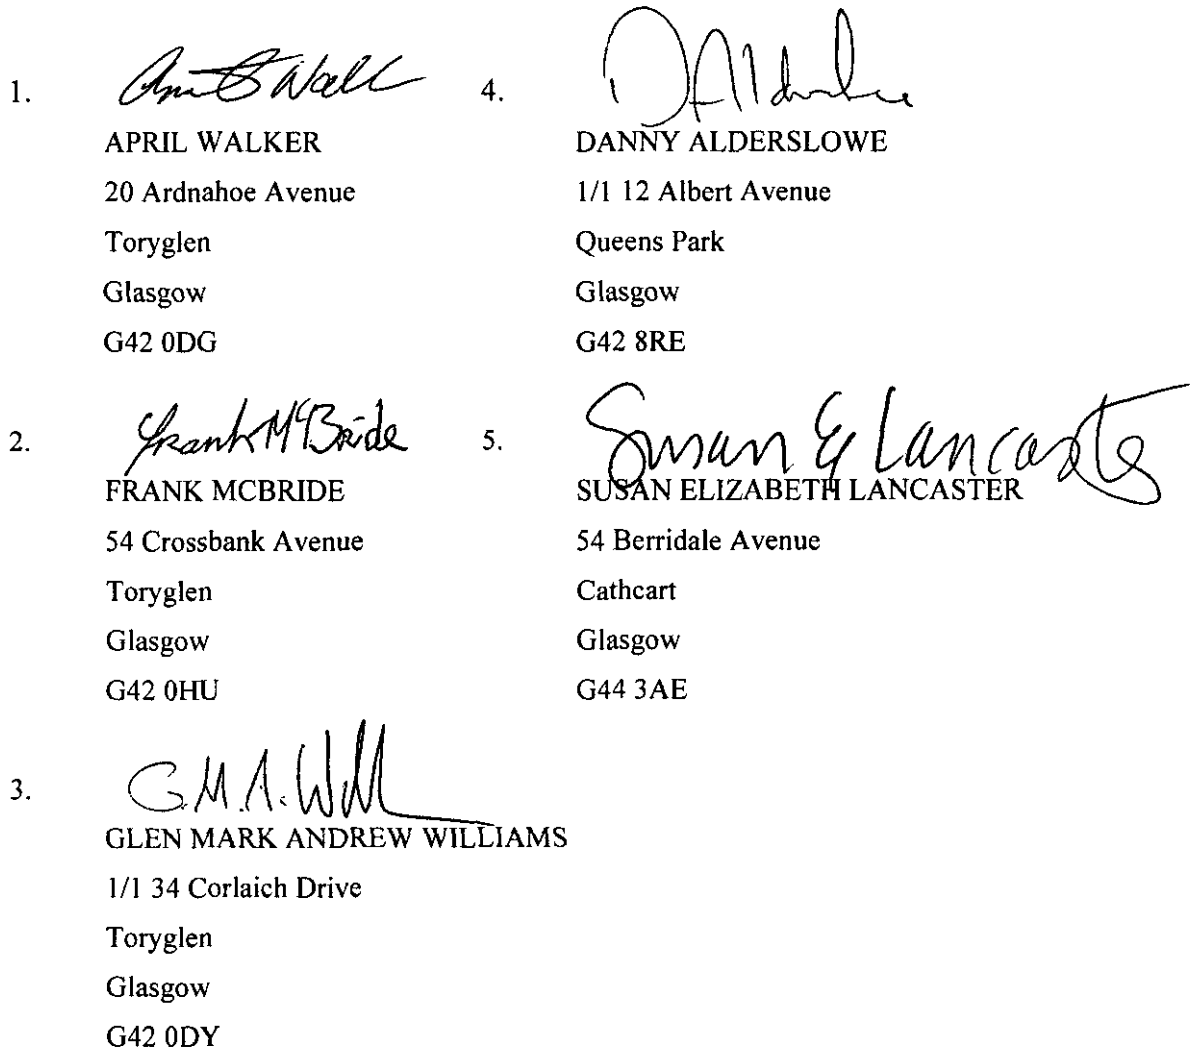 1.
April Walker
APRIL WALKER
20 Ardnahoe Avenue
Toryglen
Glasgow
G42 0DG
2.
Frank McBride
FRANK MCBRIDE
54 Crossbank Avenue
Toryglen
Glasgow
G42 0HU
3.
G.M.A. Will
GLEN MARK ANDREW WILLIAMS
1/1 34 Corlaich Drive
Toryglen
Glasgow
G42 0DY
4.
DANNY ALDERSLOWE
1/1 12 Albert Avenue
Queens Park
Glasgow
G42 8RE
5.
Susan E Lancaster
SUSAN ELIZABETH LANCASTER
54 Berridale Avenue
Cathcart
Glasgow
G44 3AE